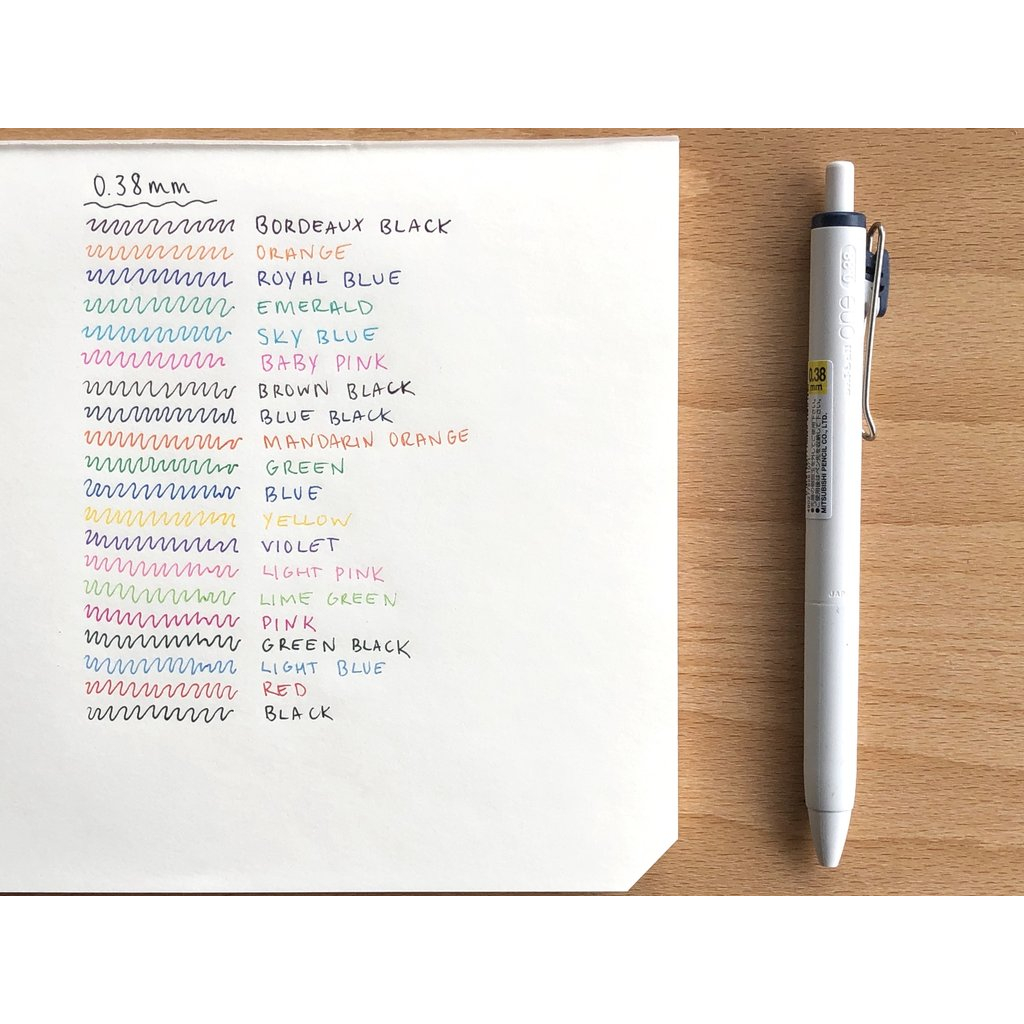 0.38mm
BORDEAUX BLACK
ORANGE
ROYAL BLUE
EMERALD
SKY BLUE
BABY PINK
BROWN BLACK
BLUE BLACK
MANDARIN ORANGE
GREEN
BLUE
YELLOW
VIOLET
LIGHT PINK
LIME GREEN
PINK
GREEN BLACK
LIGHT BLUE
RED
BLACK
one
0.38
mm
MITSUBISHI PENCIL CO., LTD.